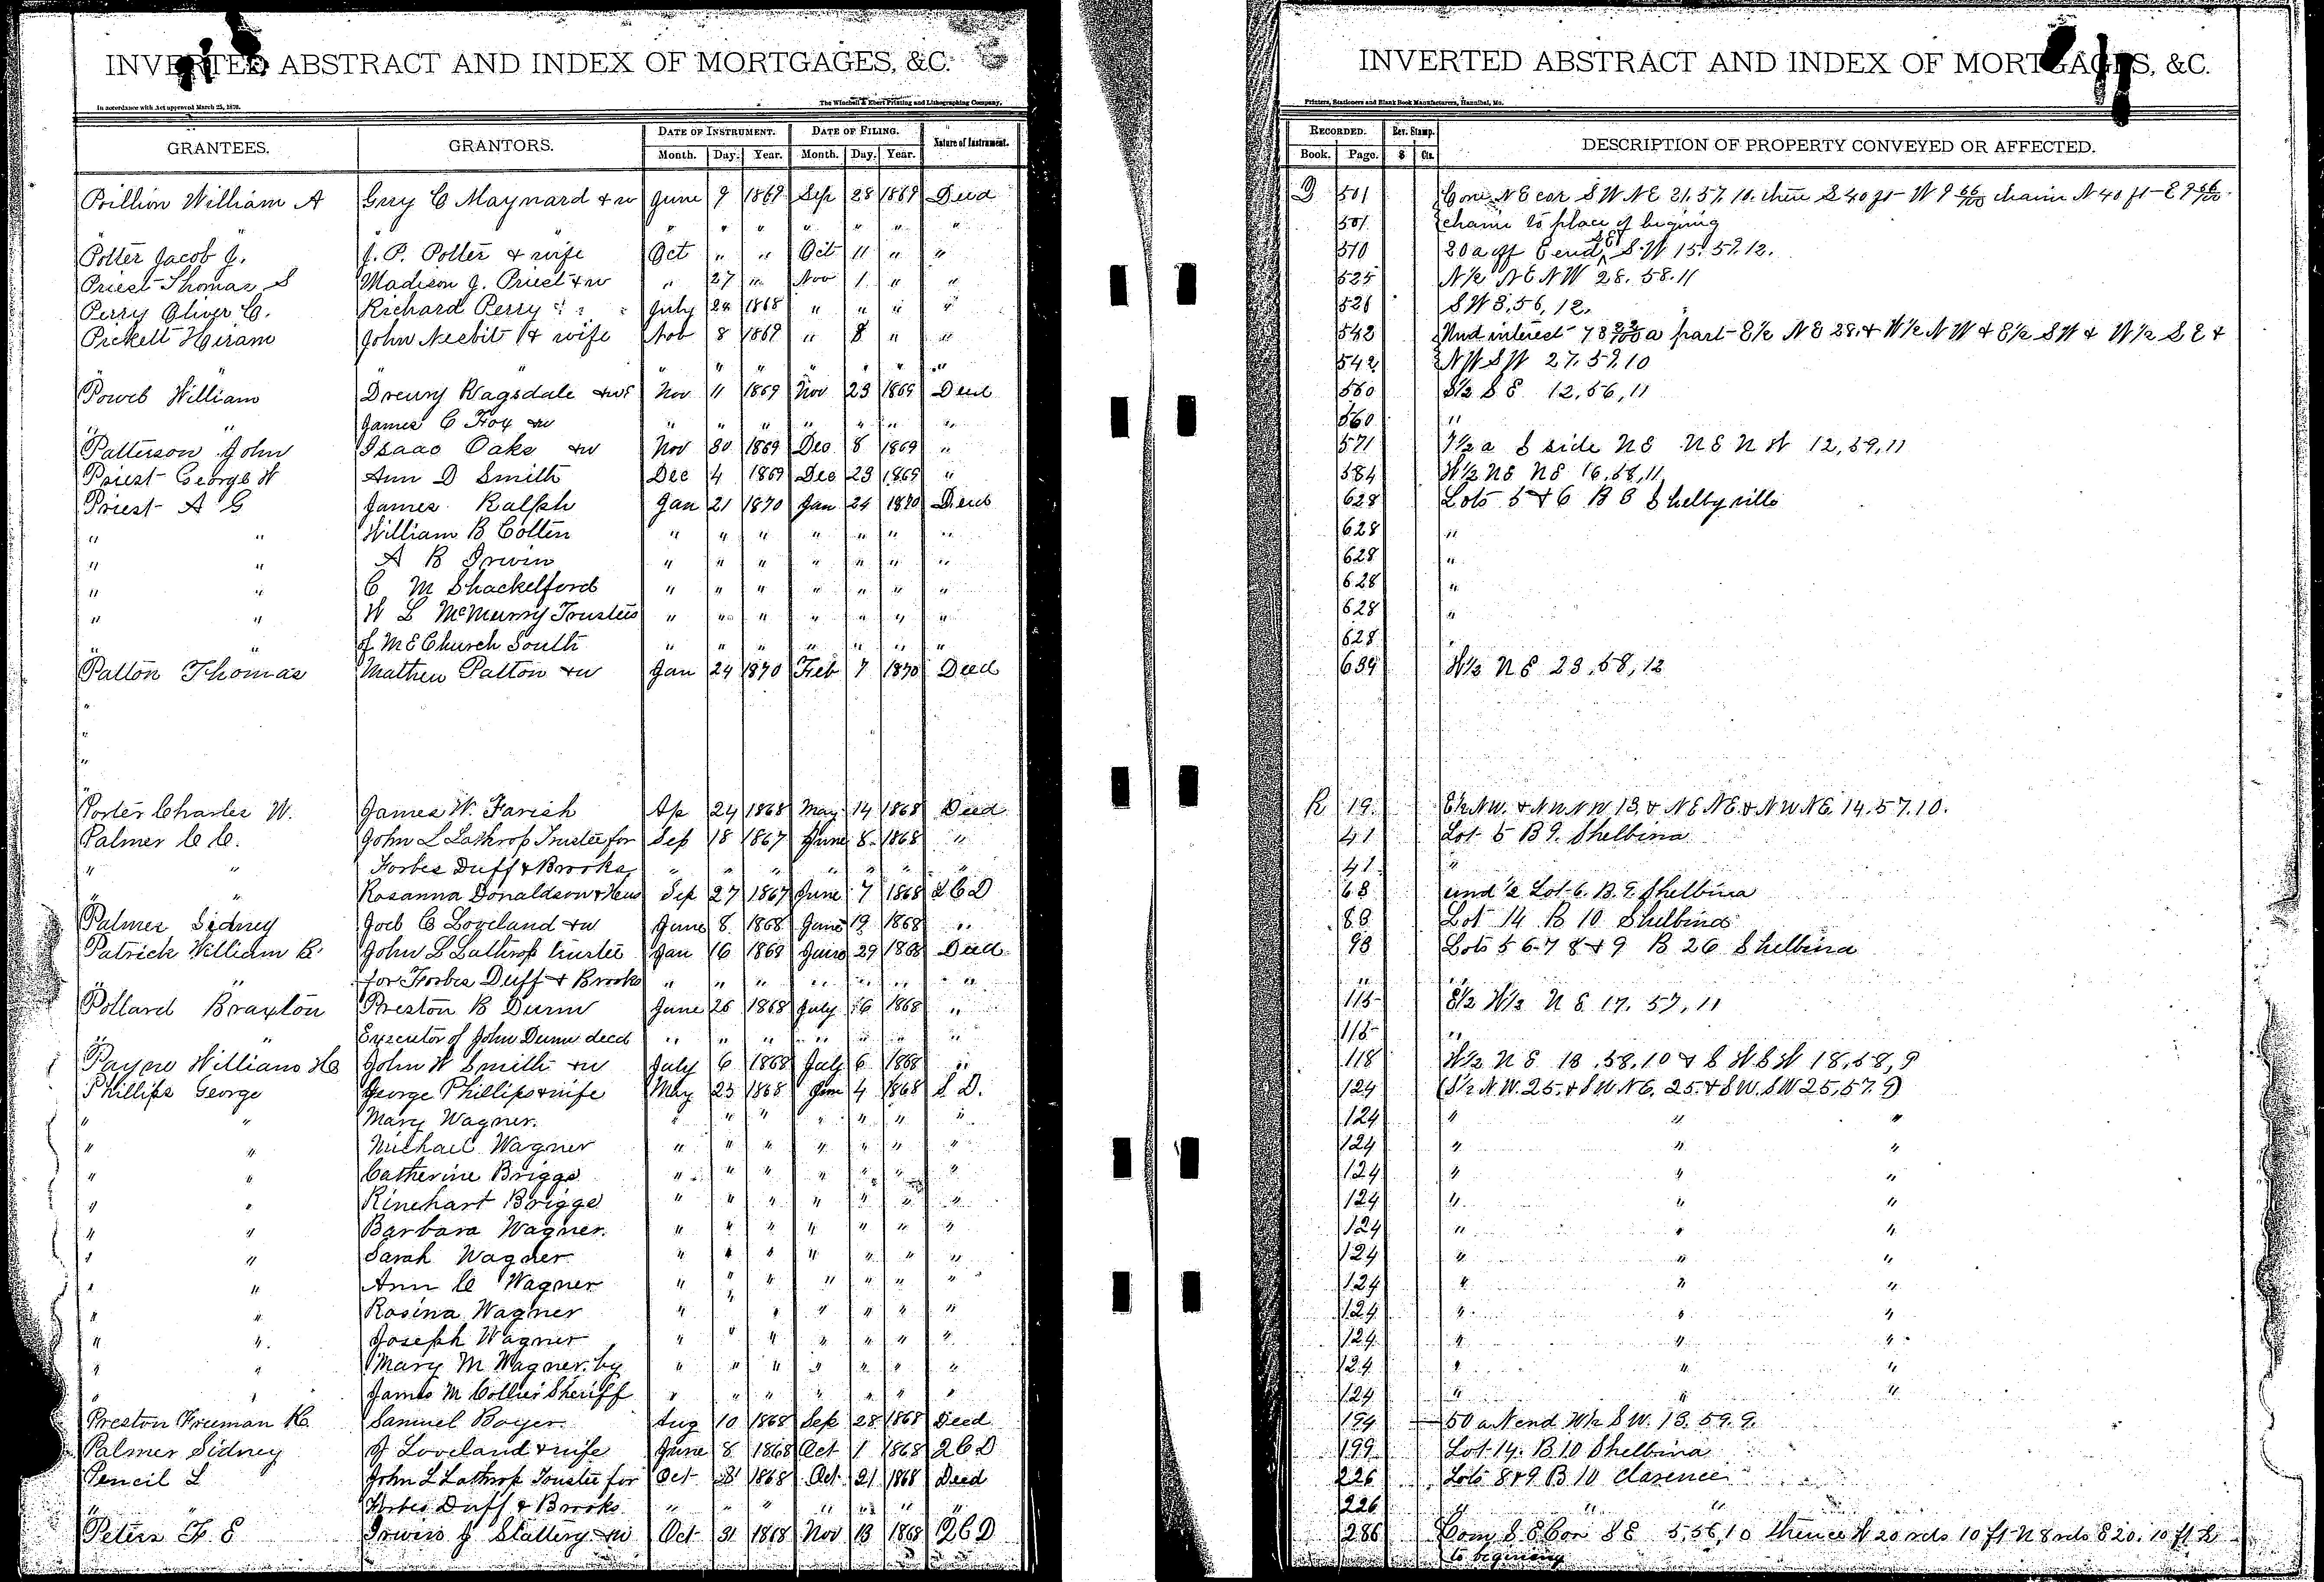 INVERTED ABSTRACT AND INDEX OF MORTGAGES, &C.
In accordance with Act approved March 25, 1870.
The Winchell & Ebert Printing and Lithographing Company,
GRANTEES. GRANTORS. DATE OF INSTRUMENT. DATE OF FILING. Nature of Instrument.
Month. Day. Year. Month. Day. Year.
Billion William A Guy C Maynard & w June 9 1869 Sep 28 1869 Deed
" " " " " " "
Potter Jacob J. J. P. Potter & wife Oct " " Oct 11 " "
Priest Thomas S Madison J. Priest & w " 27 " Nov 1 " "
Perry Oliver C. Richard Perry " " July 24 1868 " " " "
Pickett Hiram John Nesbit & wife Nov 8 1869 " 8 " "
" " " " " " " " "
Powel William Drewry Ragsdale & wf Nov 11 1869 Nov 23 1869 Deed
" " James C Fox & w " " " " " " "
Patterson John Isaac Oake & w Nov 30 1869 Dec 8 1869 "
Priest George W Ann D Smith Dec 4 1869 Dec 23 1869 "
Priest A G James Ralph Jan 21 1870 Jan 24 1870 Deed
" " William B Cotten " " " " " " "
" " A B Irwin " " " " " " "
" " C M Shackelford " " " " " " "
" " W L McMurry Trustees " " " " " " "
" " of M E Church South " " " " " " "
Patton Thomas Mathew Patton & w Jan 24 1870 Feb 7 1870 Deed
"
"
"
Porter Charles W. James W. Farish Ap 24 1868 May 14 1868 Deed
Palmer C C. John L Lathrop Trustee for Sep 18 1867 June 8 1868 "
" " Forbes Duff & Brooks " " " " " " "
" " Rosanna Donaldson & Hus Sep 27 1867 June 7 1868 2 C D
Palmer Sidney Joel C Loveland & w June 8 1868 June 19 1868 "
Patrick William B. John L Lathrop trustee Jan 16 1868 June 29 1868 Deed
" " for Forbes Duff & Brooks " " " " " " "
Pollard Braxton Preston B Dunn June 26 1868 July 6 1868 "
" " Executor of John Dunn decd " " " " " " "
Payne William H John W Smith & w July 6 1868 July 6 1868 "
Phillips George George Phillips & wife May 23 1868 Jun 4 1868 S D.
" " Mary Wagner. " " " " " " "
" " Michael Wagner " " " " " " "
" " Catherine Briggs " " " " " " "
" " Rinehart Briggs " " " " " " "
" " Barbara Wagner. " " " " " " "
" " Sarah Wagner " " " " " " "
" " Ann C Wagner " " " " " " "
" " Rosina Wagner " " " " " " "
" " Joseph Wagner " " " " " " "
" " Mary M Wagner. by " " " " " " "
" " James M Collier Sheriff " " " " " " "
Preston Freeman H. Samuel Boyer. Aug 10 1868 Sep 28 1868 Deed
Palmer Sidney J Loveland & wife June 8 1868 Oct 1 1868 2 C D
Pencil L John L Lathrop Trustee for Oct 1868 Oct 21 1868 Deed
" Forbes Duff & Brooks " " " " " " "
Peters F. E Irwin J Slattery & w Oct 31 1868 Nov 13 1868 2 C D
INVERTED ABSTRACT AND INDEX OF MORTGAGES, &C.
Printers, Stationers and Blank Book Manufacturers, Hannibal, Mo.
RECORDED. Rev. Stamp. DESCRIPTION OF PROPERTY CONVEYED OR AFFECTED.
Book. Page. $ Cts.
Q 501 Com N E cor S W N E 21. 57. 10. then S 40 ft W 9 66/100 chains N 40 ft E 9 66/100
501 chains to place of begining
510 20 a off E end S W 15. 57. 12.
525 N 1/2 N E N W 28. 58. 11
526 S W 8. 56, 12.
542 Und interest 78 a part E 1/2 N E 28. & W 1/2 N W & E 1/2 S W & W 1/2 S E &
542 N W S W 27. 57. 10
560 S 1/2 S E 12, 56, 11
560 "
571 7 1/2 a S side N E N E N W 12, 59, 11
584 W 1/2 N E N E 16, 58, 11
628 Lots 5 & 6 B 8 Shelbyville
628 "
628 "
628 "
628 "
628 "
639 W 1/2 N E 23, 58, 12
R 19. E 1/2 N W. & N W N W 13, & N E N E. & N W N E. 14. 57. 10.
41 Lot 5 B 9. Shelbina
41 "
68 und 1/2 Lot 6. B. 9. Shelbina
88 Lot 14 B 10 Shelbina
98 Lots 5 6 7 8 & 9 B 26 Shelbina
"
115 E 1/2 W 1/2 N E 17. 57, 11
115 "
118 W 1/2 N E 13, 58, 10 & S W S W 18, 58, 9
124 (S 1/2 N W. 25. & S W N E. 25. & S W. S W 25, 57. 9)
124 " " "
124 " " "
124 " " "
124 " " "
124 " " "
124 " " "
124 " " "
124 " " "
124 " " "
124 " " "
124 " " "
194 50 a N end W 1/2 S W. 13. 59. 9.
199 Lot 14. B. 10 Shelbina
226 Lots 8 & 9 B 10 Clarence
226 " "
286 Com S E Cor S E 5, 56, 10 thence W 20 rds 10 ft N 8 rds E 20. 10 ft S
to begining